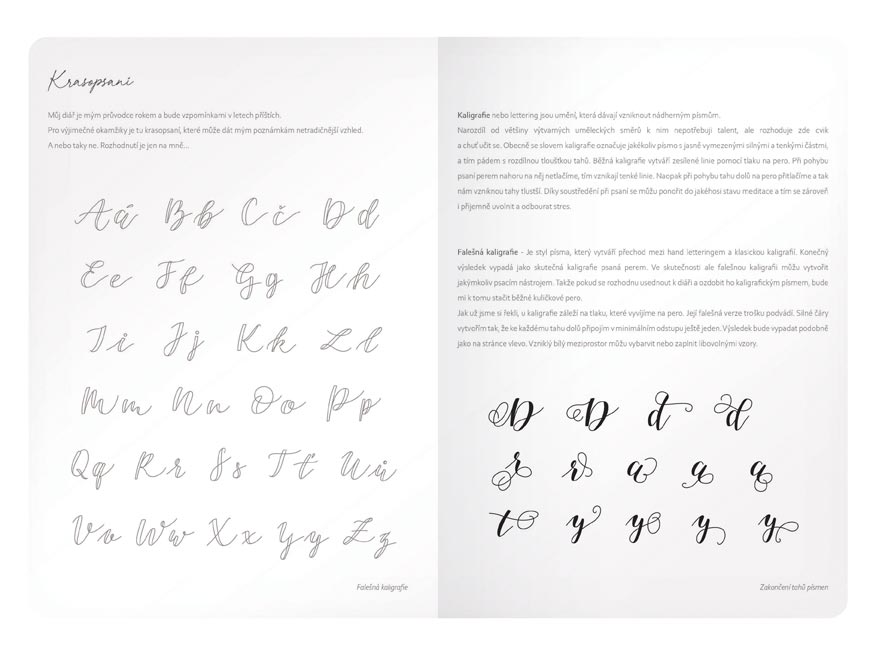 Krasopsaní
Můj diář je mým průvodce rokem a bude vzpomínkami v letech příštích.
Pro výjimečné okamžiky je tu krasopsaní, které může dát mým poznámkám netradičnější vzhled.
A nebo taky ne. Rozhodnutí je jen na mně...
Aá Bb Cč Dd
Ee Ff Gg Hh
Ii Jj Kk Ll
Mm Nn Oo Pp
Qq Rr Ss Tt Uů
Vv Ww Xx Yy Zz
Falešná kaligrafie
Kaligrafie nebo lettering jsou umění, která dávají vzniknout nádherným písmům.
Narozdíl od většiny výtvarných uměleckých směrů k nim nepotřebuji talent, ale rozhoduje zde cvik
a chuť učit se. Obecně se slovem kaligrafie označuje jakékoliv písmo s jasně vymezenými silnými a tenkými částmi,
a tím pádem s rozdílnou tloušťkou tahů. Běžná kaligrafie vytváří zesílené linie pomocí tlaku na pero. Při pohybu
psaní perem nahoru na něj netlačíme, tím vznikají tenké linie. Naopak při pohybu tahu dolů na pero přitlačíme a tak
nám vzniknou tahy tlustší. Díky soustředění při psaní se můžu ponořit do jakéhosi stavu meditace a tím se zároveň
i příjemně uvolnit a odbourat stres.
Falešná kaligrafie - Je styl písma, který vytváří přechod mezi hand letteringem a klasickou kaligrafií. Konečný
výsledek vypadá jako skutečná kaligrafie psaná perem. Ve skutečnosti ale falešnou kaligrafii můžu vytvořit
jakýmkoliv psacím nástrojem. Takže pokud se rozhodnu usednout k diáři a ozdobit ho kaligrafickým písmem, bude
mi k tomu stačit běžné kuličkové pero.
Jak už jsme si řekli, u kaligrafie záleží na tlaku, které vyvíjíme na pero. Její falešná verze trošku podvádí. Silné čáry
vytvořím tak, že ke každému tahu dolů připojím v minimálním odstupu ještě jeden. Výsledek bude vypadat podobně
jako na stránce vlevo. Vzniklý bílý meziprostor můžu vybarvit nebo zaplnit libovolnými vzory.
D D d d
r r a a a
t y y y y
Zakončení tahů písmen